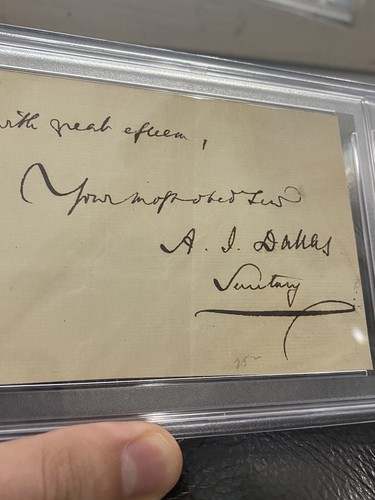 with great esteem,
Your most obed Serv
A. J. Dallas
Secretary